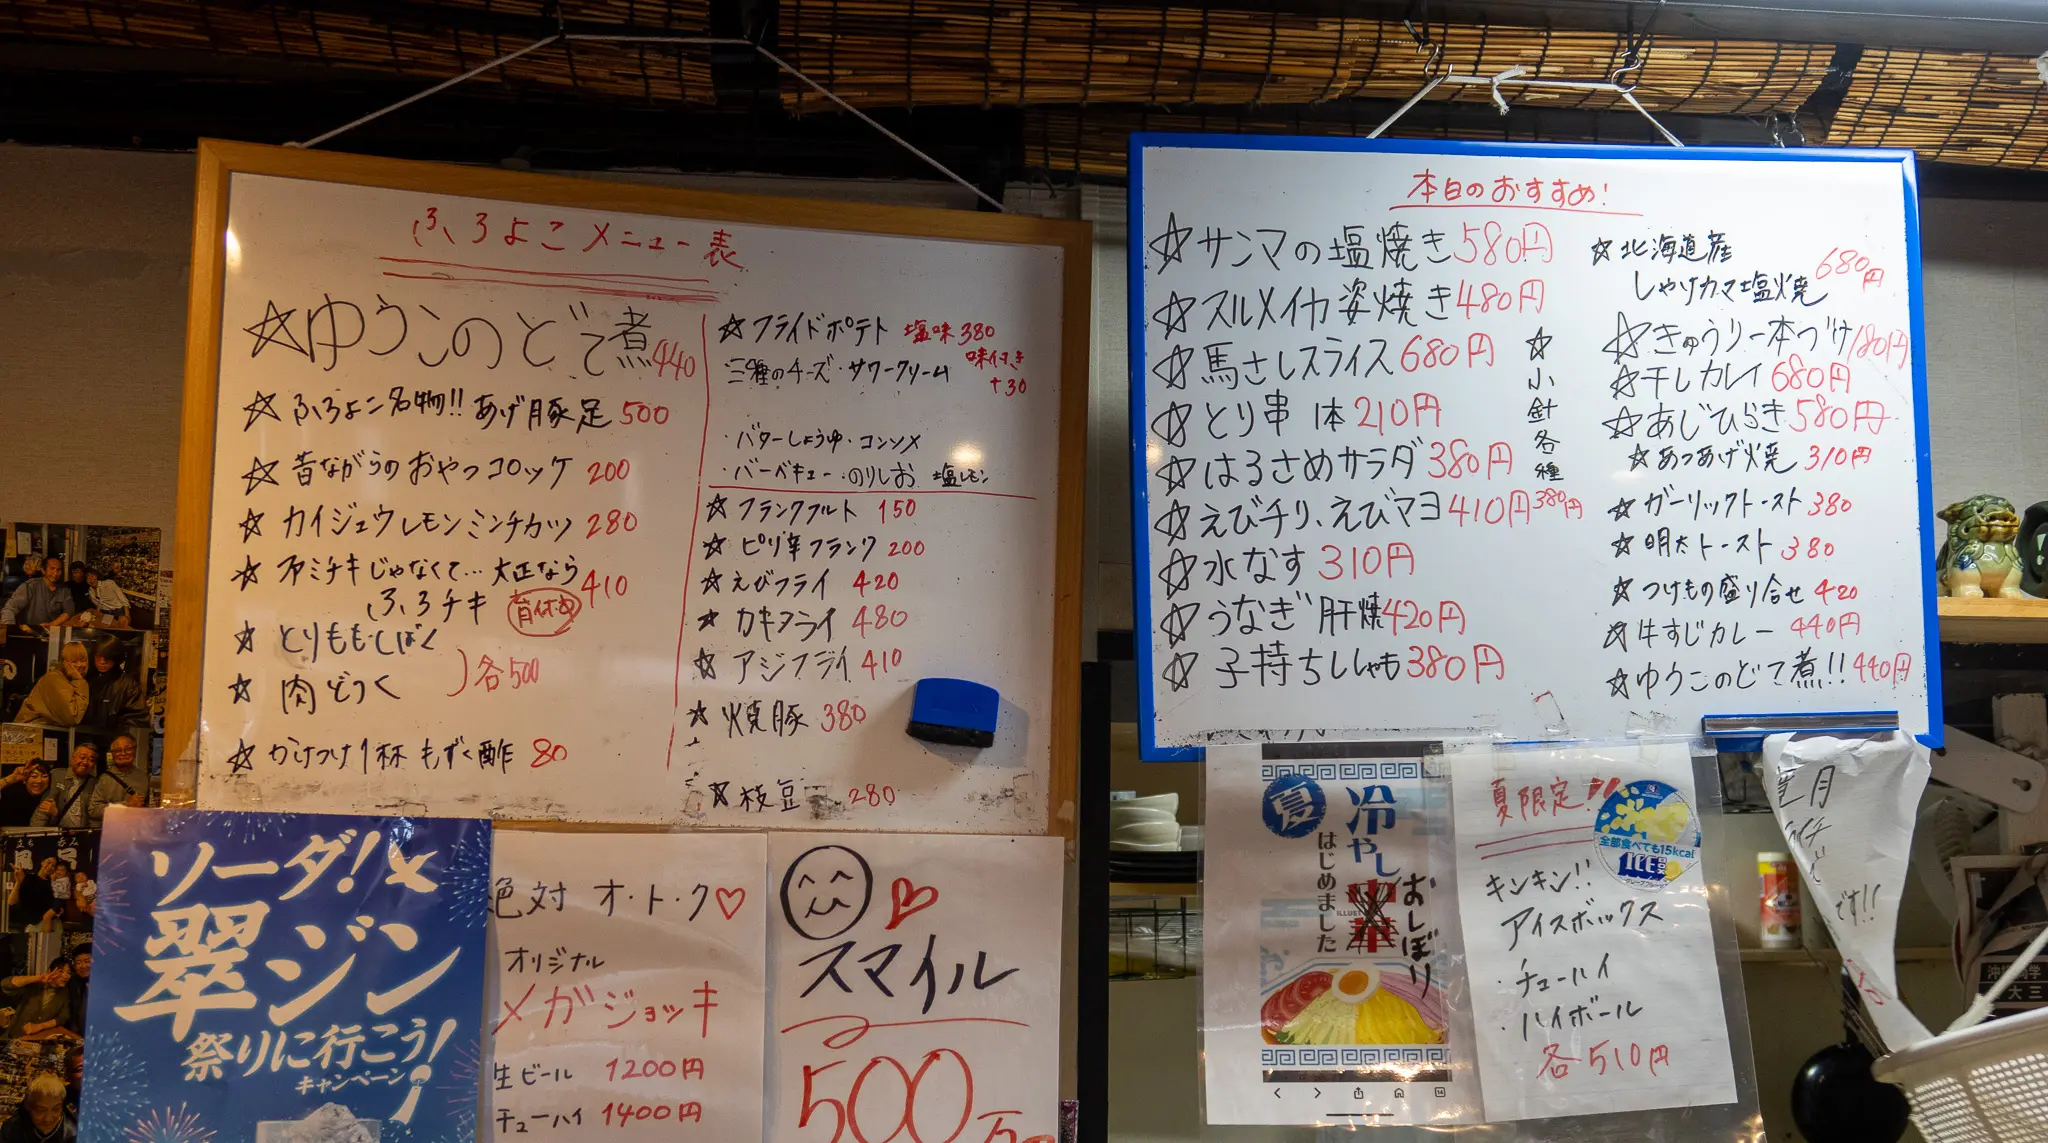 ふろよこメニュー表
☆ゆうこのどて煮 440
☆ふろよこ名物!! あげ豚足 500
☆昔ながらのおやつコロッケ 200
☆カイジュウレモンミンチカツ 280
☆ファミチキじゃなくて…大正なら
ふろチキ 410
育休中
☆とりももしばく
☆肉どつく
各500
☆かけつけ1杯 もずく酢 80
☆フライドポテト 塩味 380
三種のチーズ・サワークリーム 味付き
+30
・バターしょうゆ・コンソメ
・バーベキュー・のりしお 塩レモン
☆フランクフルト 150
☆ピリ辛フランク 200
☆えびフライ 420
☆カキフライ 480
☆アジフライ 410
☆焼豚 380
☆枝豆 280
本日のおすすめ!
☆サンマの塩焼き 580円
☆スルメイカ姿焼き 480円
☆馬さしスライス 680円
☆とり串 1本 210円
☆はるさめサラダ 380円
☆えびチリ、えびマヨ 410円
☆水なす 310円
☆うなぎ肝焼 420円
☆子持ちししゃも 380円
☆小針各種
380円
☆北海道産
しゃけカマ塩焼 680円
☆きゅうり一本づけ 180円
☆干しカレイ 680円
☆あじひらき 580円
☆あつあげ焼 310円
☆ガーリックトースト 380
☆明太トースト 380
☆つけもの盛り合せ 420
☆牛すじカレー 440円
☆ゆうこのどて煮!! 440円
ソーダ!
翠ジン
祭りに行こう!
キャンペーン
絶対 オ・ト・ク♡
オリジナル
メガジョッキ
生ビール 1200円
チューハイ 1400円
スマイル
500万
夏
冷やし中華
おしぼり
はじめました
夏限定!!
全部食べても15kcal
ICE BOX
キンキン!!
アイスボックス
・チューハイ
・ハイボール
各510円
です!!